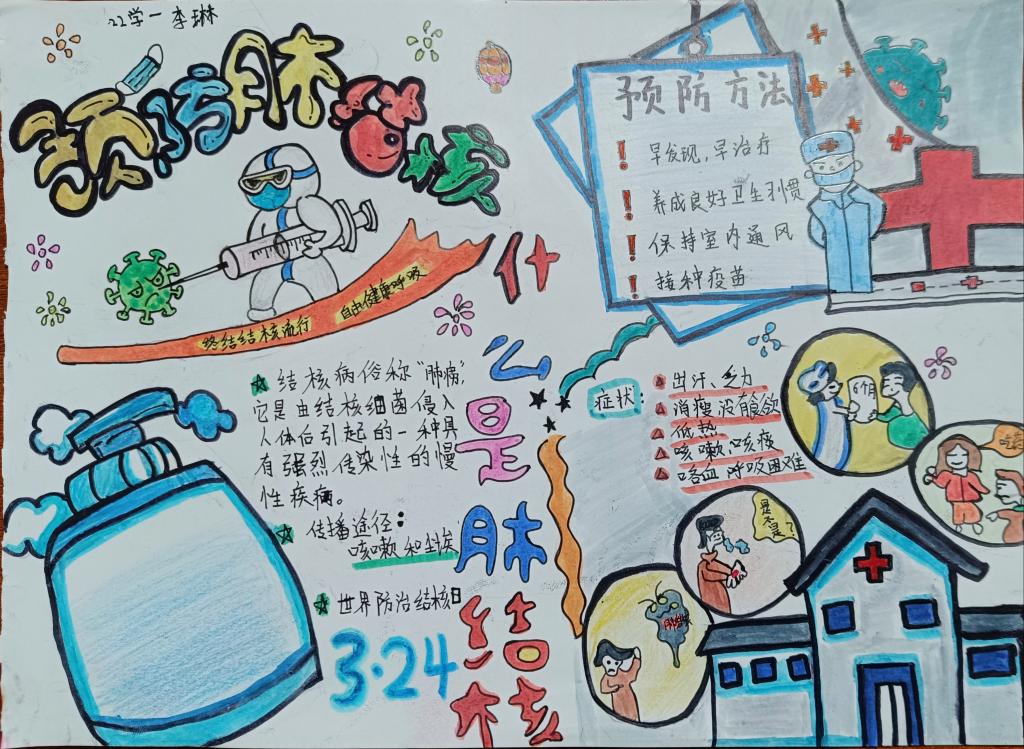 22学一 李琳
预防肺结核
终结结核流行
自由健康呼吸
预防方法
! 早发现,早治疗
! 养成良好卫生习惯
! 保持室内通风
! 接种疫苗
什么是肺结核
结核病俗称“肺痨”,
它是由结核细菌侵入
人体后引起的一种具
有强烈传染性的慢
性疾病。
传播途径:
咳嗽和尘埃
世界防治结核日
3·24
症状:
出汗、乏力
消瘦 没有食欲
低热
咳嗽、咳痰
咯血 呼吸困难
6个月
是不是?